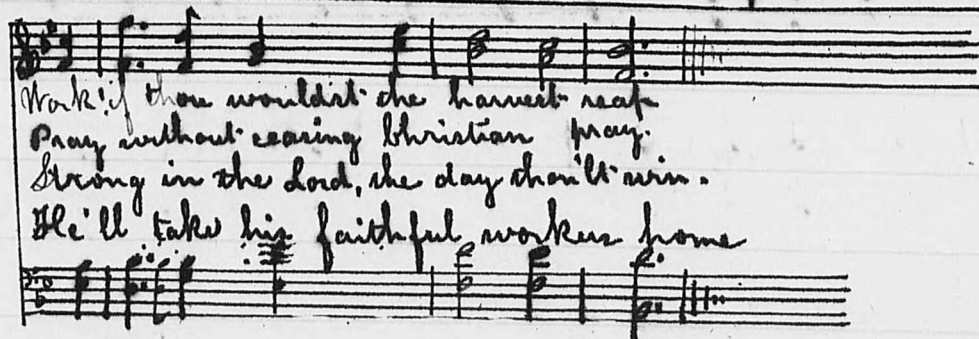 Work! if thou wouldst the harvest reap
Pray without ceasing Christian pray.
Strong in the Lord, the day thou'lt win.
He'll take his faithful workers home